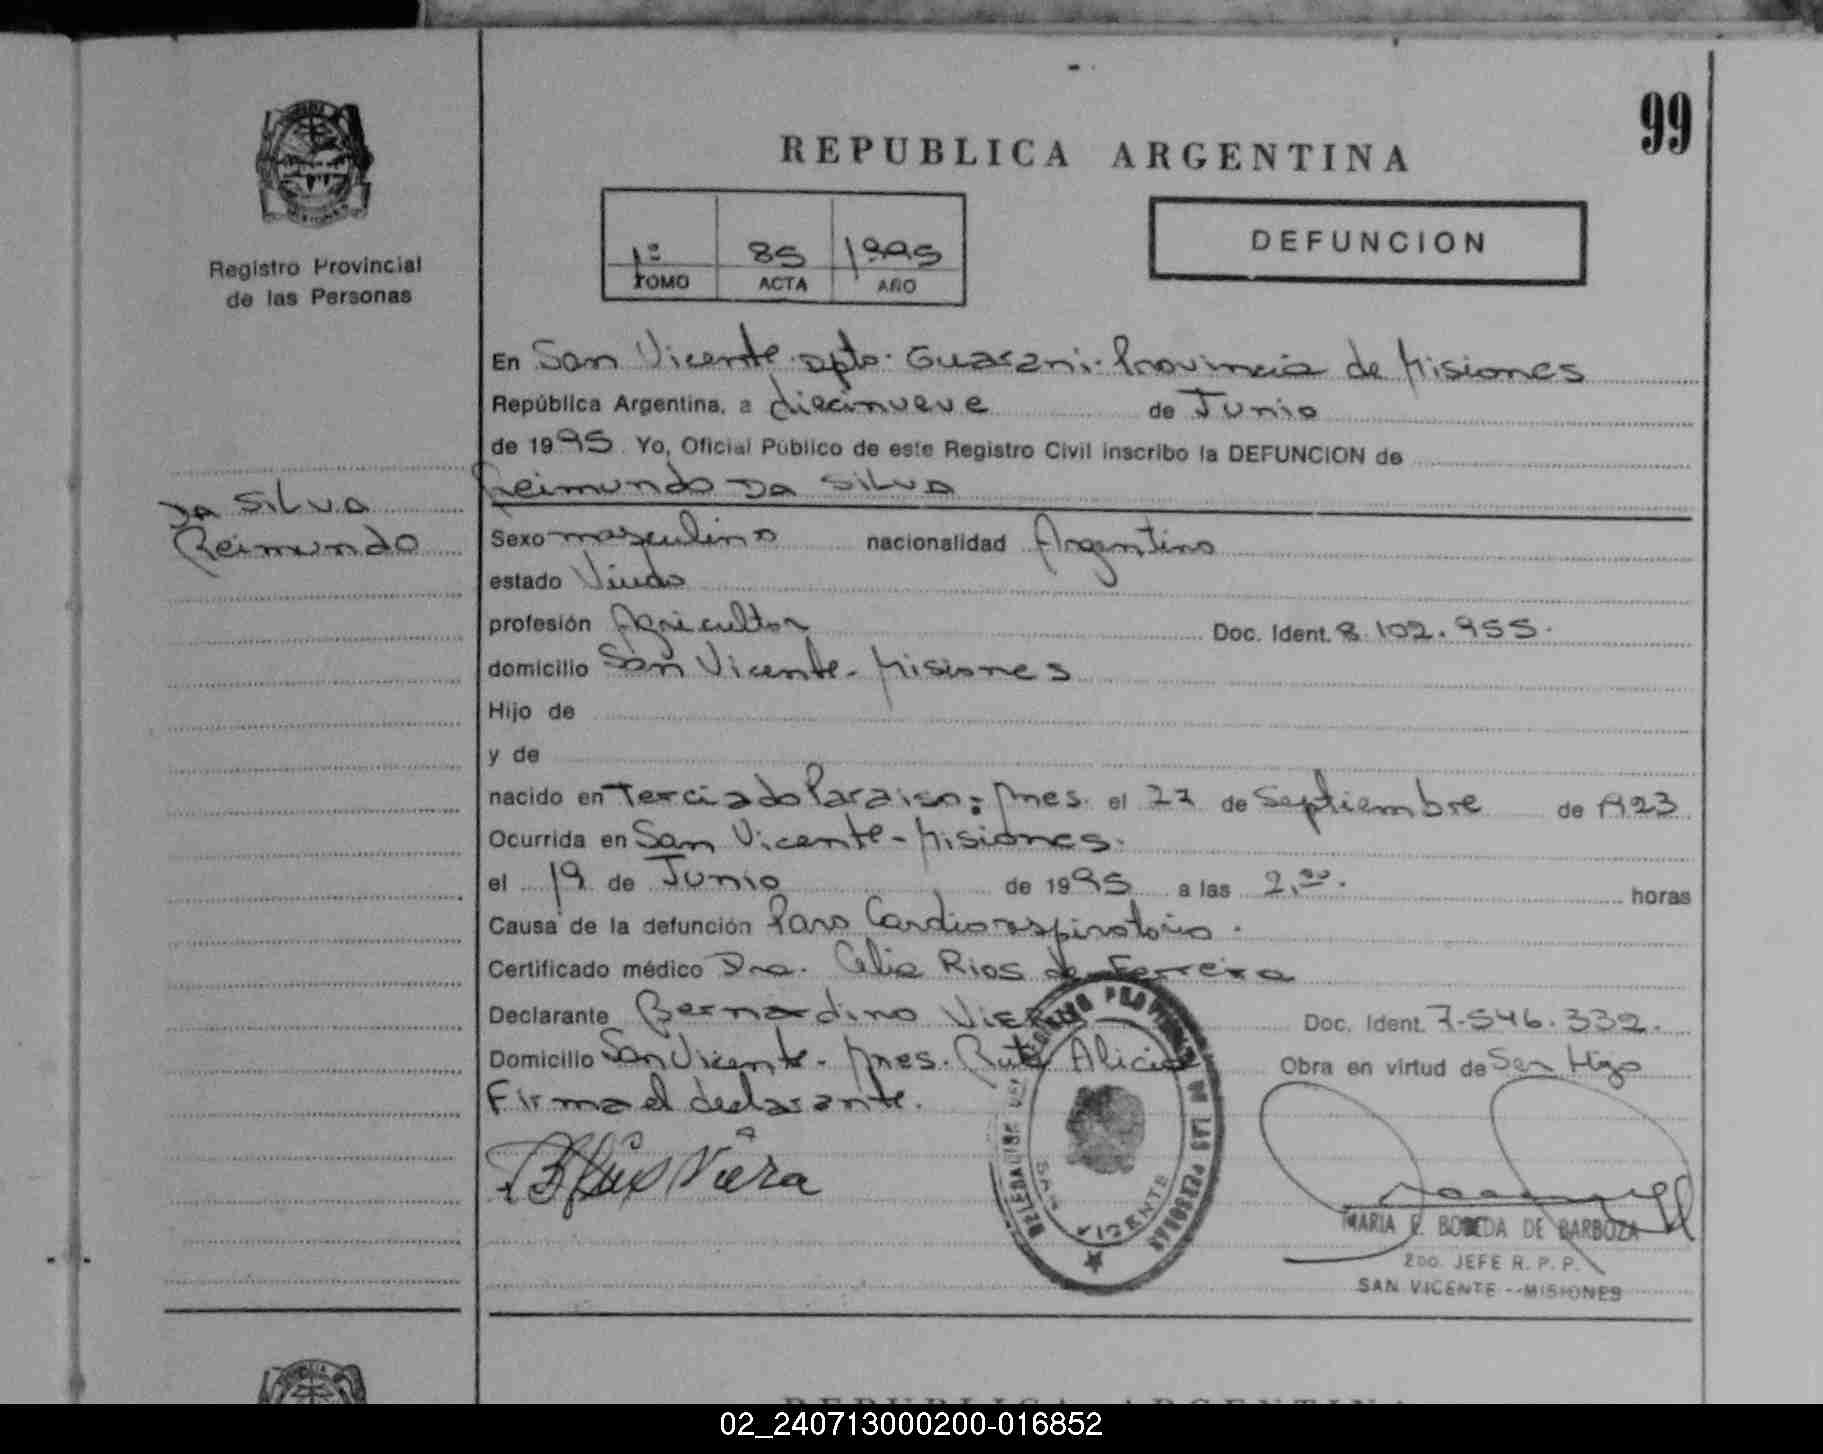 99
REPUBLICA ARGENTINA
1º 85 1995
TOMO ACTA AÑO
DEFUNCION
Registro Provincial
de las Personas
En San Vicente. Dpto. Guarani. Provincia de Misiones
República Argentina, a diecinueve de Junio
de 1995. Yo, Oficial Público de este Registro Civil inscribo la DEFUNCION de
Reimundo DA SILVA
DA SILVA
Reimundo
Sexo masculino nacionalidad Argentino
estado Viudo
profesión Agricultor Doc. Ident. 8.102.955.
domicilio San Vicente - Misiones
Hijo de
y de
nacido en Terciado Paraiso; Mnes. el 27 de Septiembre de 1923
Ocurrida en San Vicente - Misiones.
el 19 de Junio de 1995 a las 2,00. horas
Causa de la defunción Paro Cardiorespiratorio.
Certificado médico Dra. Celia Rios de Ferreira
Declarante Bernardino Doc. Ident. 7.546.332.
Domicilio San Vicente - Mnes. Ruta Alicia Obra en virtud de Ser Hijo
Firma el declarante.
Viera
DELEGACION DEL REGISTRO PROVINCIAL DE LAS PERSONAS
SAN VICENTE
MARIA E. BOVEDA DE BARBOZA
2DO. JEFE R. P. P.
SAN VICENTE - MISIONES
REPUBLICA ARGENTINA
02_240713000200-016852